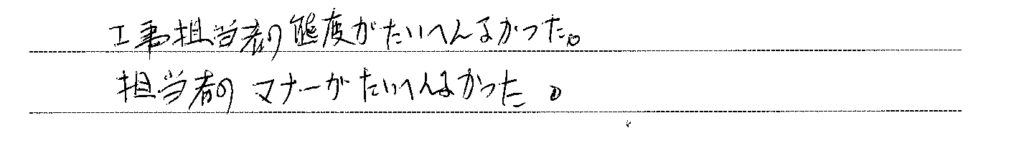 工事担当者の態度がたいへんよかった。
担当者のマナーがたいへんよかった。